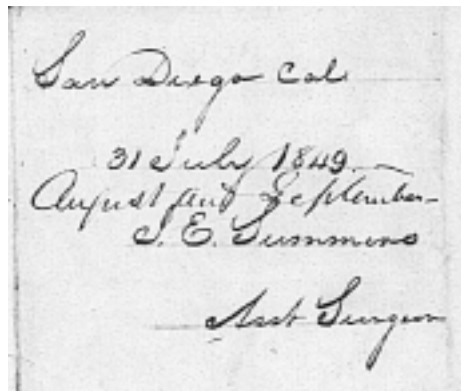 San Diego Cal
31 July 1849
August and September
J. E. Summers
Asst Surgeon